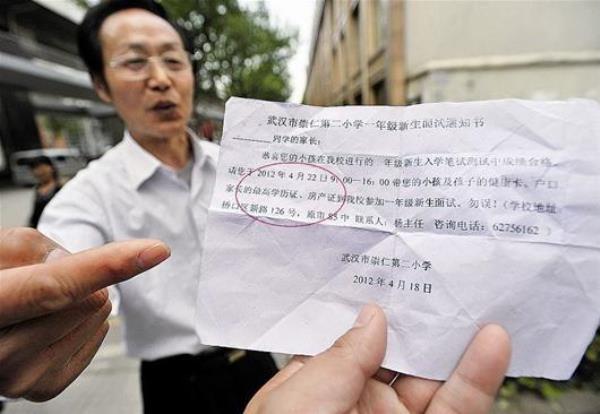 武汉市崇仁第二小学一年级新生面试通知书
同学的家长:
恭喜您的小孩在我校进行的一年级新生入学笔试测试中成绩合格,
请您于2012年4月22日9:00—16:00带您的小孩及孩子的健康卡、户口
家长的最高学历证、房产证到我校参加一年级新生面试。勿误!(学校地址
桥口区新路126号,原市85中 联系人:杨主任 咨询电话:62756162)
武汉市崇仁第二小学
2012年4月18日